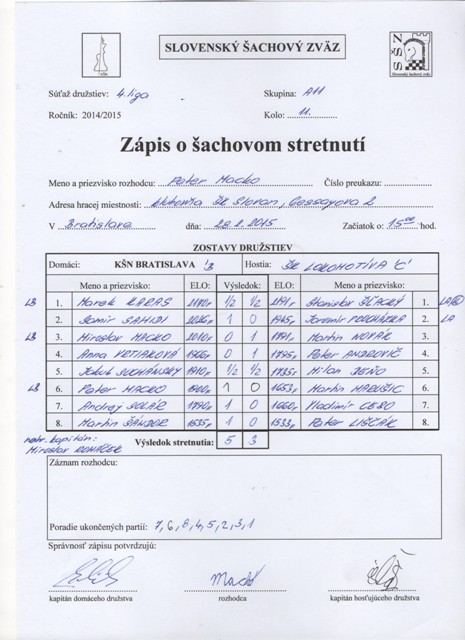 SLOVENSKÝ ŠACHOVÝ ZVÄZ
SŠZ
Slovenský šachový zväz
Súťaž družstiev: 4. liga Skupina: A11
Ročník: 2014/2015 Kolo: 11.
Zápis o šachovom stretnutí
Meno a priezvisko rozhodcu: Peter Macko Číslo preukazu:
Adresa hracej miestnosti: ŠK Slovan,
V Bratislave dňa: 2015 Začiatok o 15 00 hod.
ZOSTAVY DRUŽSTIEV
Domáci: KŠN BRATISLAVA 'B' Hostia: ŠK LOKOMOTÍVA 'C'
Meno a priezvisko: ELO: Výsledok: ELO: Meno a priezvisko:
LB 1. Marek KARAS 1/2 1/2 Stanislav 1.
2. Samir SAHIDI 1 0 Jaromír PROCHÁZKA 2. LA
LB 3. Miroslav MACKO 0 1 Martin NOVÁK 3.
4. Anna 0 1 Peter ANDROVIČ 4.
5. Jakub SUCHÁNSKY 1/2 1/2 Milan BEŇO 5.
LB 6. Peter MACKO 1 0 1653 Martin 6.
7. Andrej SOLÁR 1 0 Vladimír 7.
8. Martin ŠÁNDOR 1 0 1533 Peter LIŠČÁK 8.
nehr. kapitán: Výsledok stretnutia: 5 3
Miroslav
Záznam rozhodcu:
Poradie ukončených partií: 7,6,8,4,5,2,3,1
Správnosť zápisu potvrdzujú:
kapitán domáceho družstva rozhodca kapitán hosťujúceho družstva